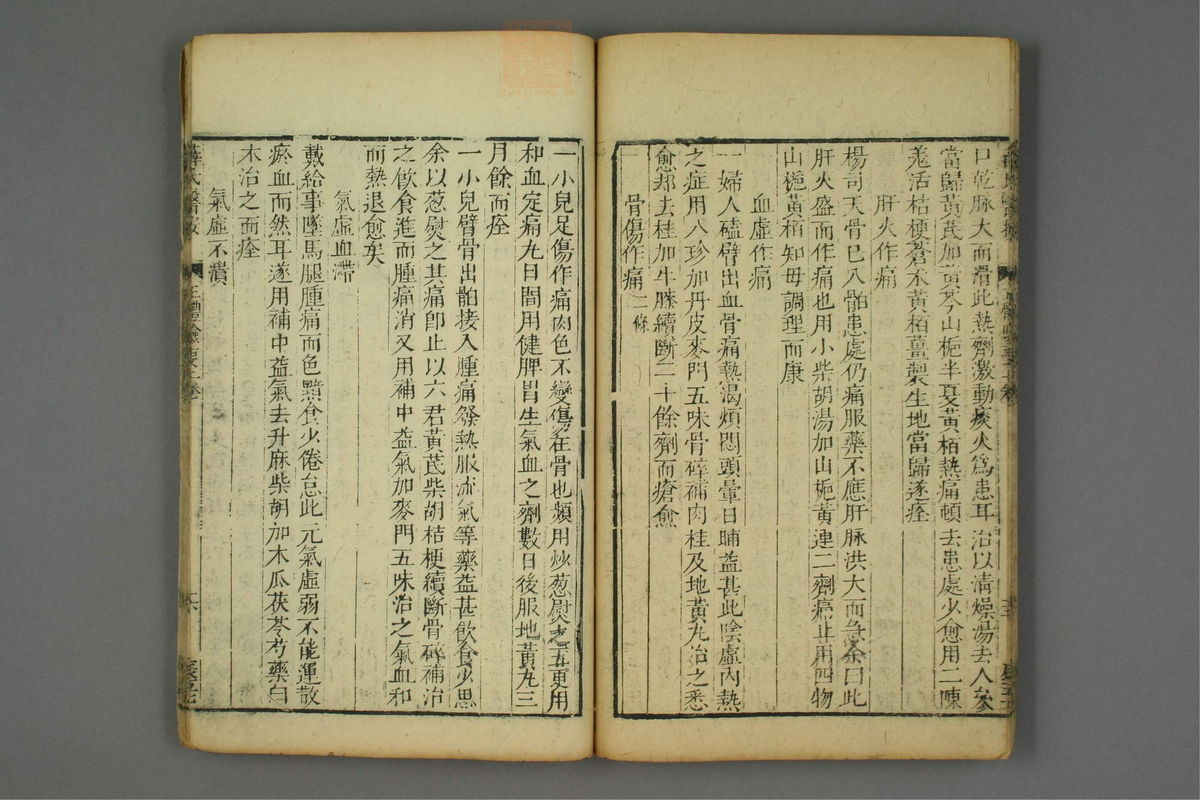 口乾脉大而滑此熱劑激動痰火為患耳治以清燥湯去人參
當歸黃芪加黃芩山梔半夏黃栢熱痛頓去患處少愈用二陳
羗活桔梗蒼朮黃栢薑製生地當歸遂痊
肝火作痛
楊司天骨已入骱患處仍痛服藥不應肝脉洪大而急余曰此
肝火盛而作痛也用小柴胡湯加山梔黃連二劑痛止用四物
山梔黃栢知母調理而康
血虛作痛
一婦人磕臂出血骨痛熱渴煩悶頭暈日晡益甚此陰虛內熱
之症用八珍加丹皮麥門五味骨碎補肉桂及地黃丸治之悉
愈却去桂加牛膝續斷二十餘劑而瘡愈
骨傷作痛 二條
一小兒足傷作痛肉色不變傷在骨也頻用炒葱熨之五更用
和血定痛丸日間用健脾胃生氣血之劑數日後服地黃丸三
月餘而痊
一小兒臂骨出骱接入腫痛發熱服流氣等藥益甚飲食少思
余以葱熨之其痛即止以六君黃芪柴胡桔梗續斷骨碎補治
之飲食進而腫痛消又用補中益氣加麥門五味治之氣血和
而熱退愈矣
氣虛血滯
戴給事墜馬腿腫痛而色黯食少倦怠此元氣虛弱不能運散
瘀血而然耳遂用補中益氣去升麻柴胡加木瓜茯苓芍藥白
朮治之而痊
氣虛不潰
薛氏醫按
正體類要上卷